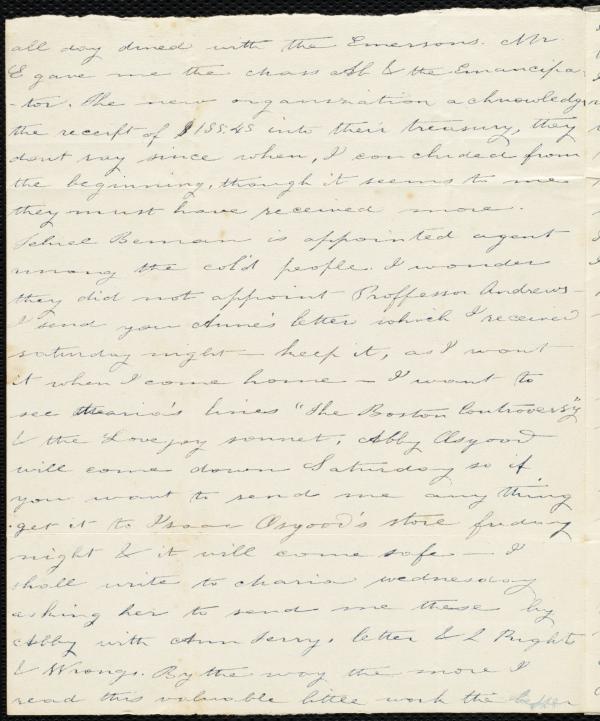 all day dined with the Emersons. Mr.
E gave me the Mass Ab & the Emancipa-
-tor. The new organization acknowledge
the receipt of $155.45 into their treasury, they
dont say since when, I concluded from
the beginning, though it seems to me
they must have received more.
Jehiel Beman is appointed agent
among the col'd people. I wonder
they did not appoint Proffessor Andrews -
I send you Anne's letter which I received
saturday night - keep it, as I want
it when I come home - I want to
see Maria's lines "The Boston Controversy"
& the Lovejoy sonnet, Abby Osgood
will come down Saturday so if
you want to send me any thing
get it to Isaac Osgood's store friday
night & it will come safe - I
shall write to Maria wednesday
asking her to send me these by
Abby with Ann Terry's letter & 2 Right
& Wrongs. By the way the more I
read this valuable little work the better